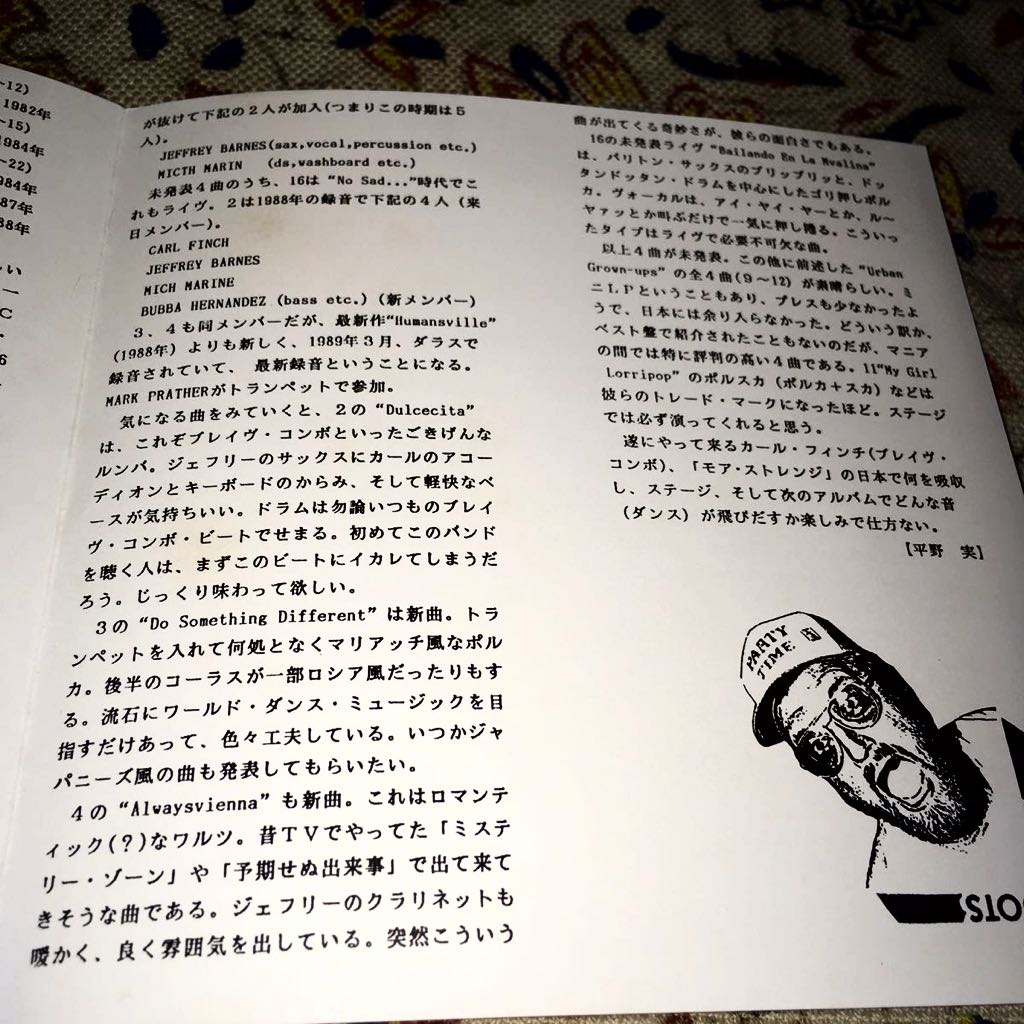 ~12)
1982年
~15)
1984年
~22)
984年
87年
88年
い
ー
C
6
が抜けて下記の2人が加入(つまりこの時期は5
人)。
JEFFREY BARNES(sax,vocal,percussion etc.)
MICTH MARIN (ds,washboard etc.)
未発表4曲のうち、16は“No Sad...”時代でこ
れもライヴ。2は1988年の録音で下記の4人(来
日メンバー)。
CARL FINCH
JEFFREY BARNES
MICH MARINE
BUBBA HERNANDEZ (bass etc.) (新メンバー)
3、4も同メンバーだが、最新作“Humansville”
(1988年)よりも新しく、1989年3月、ダラスで
録音されていて、最新録音ということになる。
MARK PRATHERがトランペットで参加。
気になる曲をみていくと、2の“Dulcecita”
は、これぞブレイヴ・コンボといったごきげんな
ルンバ。ジェフリーのサックスにカールのアコー
ディオンとキーボードのからみ、そして軽快なベ
ースが気持ちいい。ドラムは勿論いつものブレイ
ヴ・コンボ・ビートでせまる。初めてこのバンド
を聴く人は、まずこのビートにイカレてしまうだ
ろう。じっくり味わって欲しい。
3の“Do Something Different”は新曲。トラ
ンペットを入れて何処となくマリアッチ風なポル
カ。後半のコーラスが一部ロシア風だったりもす
る。流石にワールド・ダンス・ミュージックを目
指すだけあって、色々工夫している。いつかジャ
パニーズ風の曲も発表してもらいたい。
4の“Alwaysvienna”も新曲。これはロマンテ
ィック(?)なワルツ。昔TVでやってた「ミステ
リー・ゾーン」や「予期せぬ出来事」で出て来て
きそうな曲である。ジェフリーのクラリネットも
暖かく、良く雰囲気を出している。突然こういう
曲が出てくる奇妙さが、彼らの面白さでもある。
16の未発表ライヴ“Bailando En La Mvalina”
は、バリトン・サックスのブリッブリッと、ドッ
タンドッタン・ドラムを中心にしたゴリ押しポル
カ。ヴォーカルは、アイ・ヤイ・ヤーとか、ル〜
ヤァッとか叫ぶだけで一気に押し捲る。こういっ
たタイプはライヴで必要不可欠な曲。
以上4曲が未発表。この他に前述した“Urban
Grown-ups”の全4曲(9~12)が素晴らしい。ミ
ニLPということもあり、プレスも少なかったよ
うで、日本には余り入らなかった。どういう訳か、
ベスト盤で紹介されたこともないのだが、マニア
の間では特に評判の高い4曲である。11“My Girl
Lorripop”のポルスカ(ポルカ+スカ)などは
彼らのトレード・マークになったほど。ステージ
では必ず演ってくれると思う。
遂にやって来るカール・フィンチ(ブレイヴ・
コンボ)、「モア・ストレンジ」の日本で何を吸収
し、ステージ、そして次のアルバムでどんな音
(ダンス)が飛びだすか楽しみで仕方ない。
[平野 実]
PARTY
TIME
STO